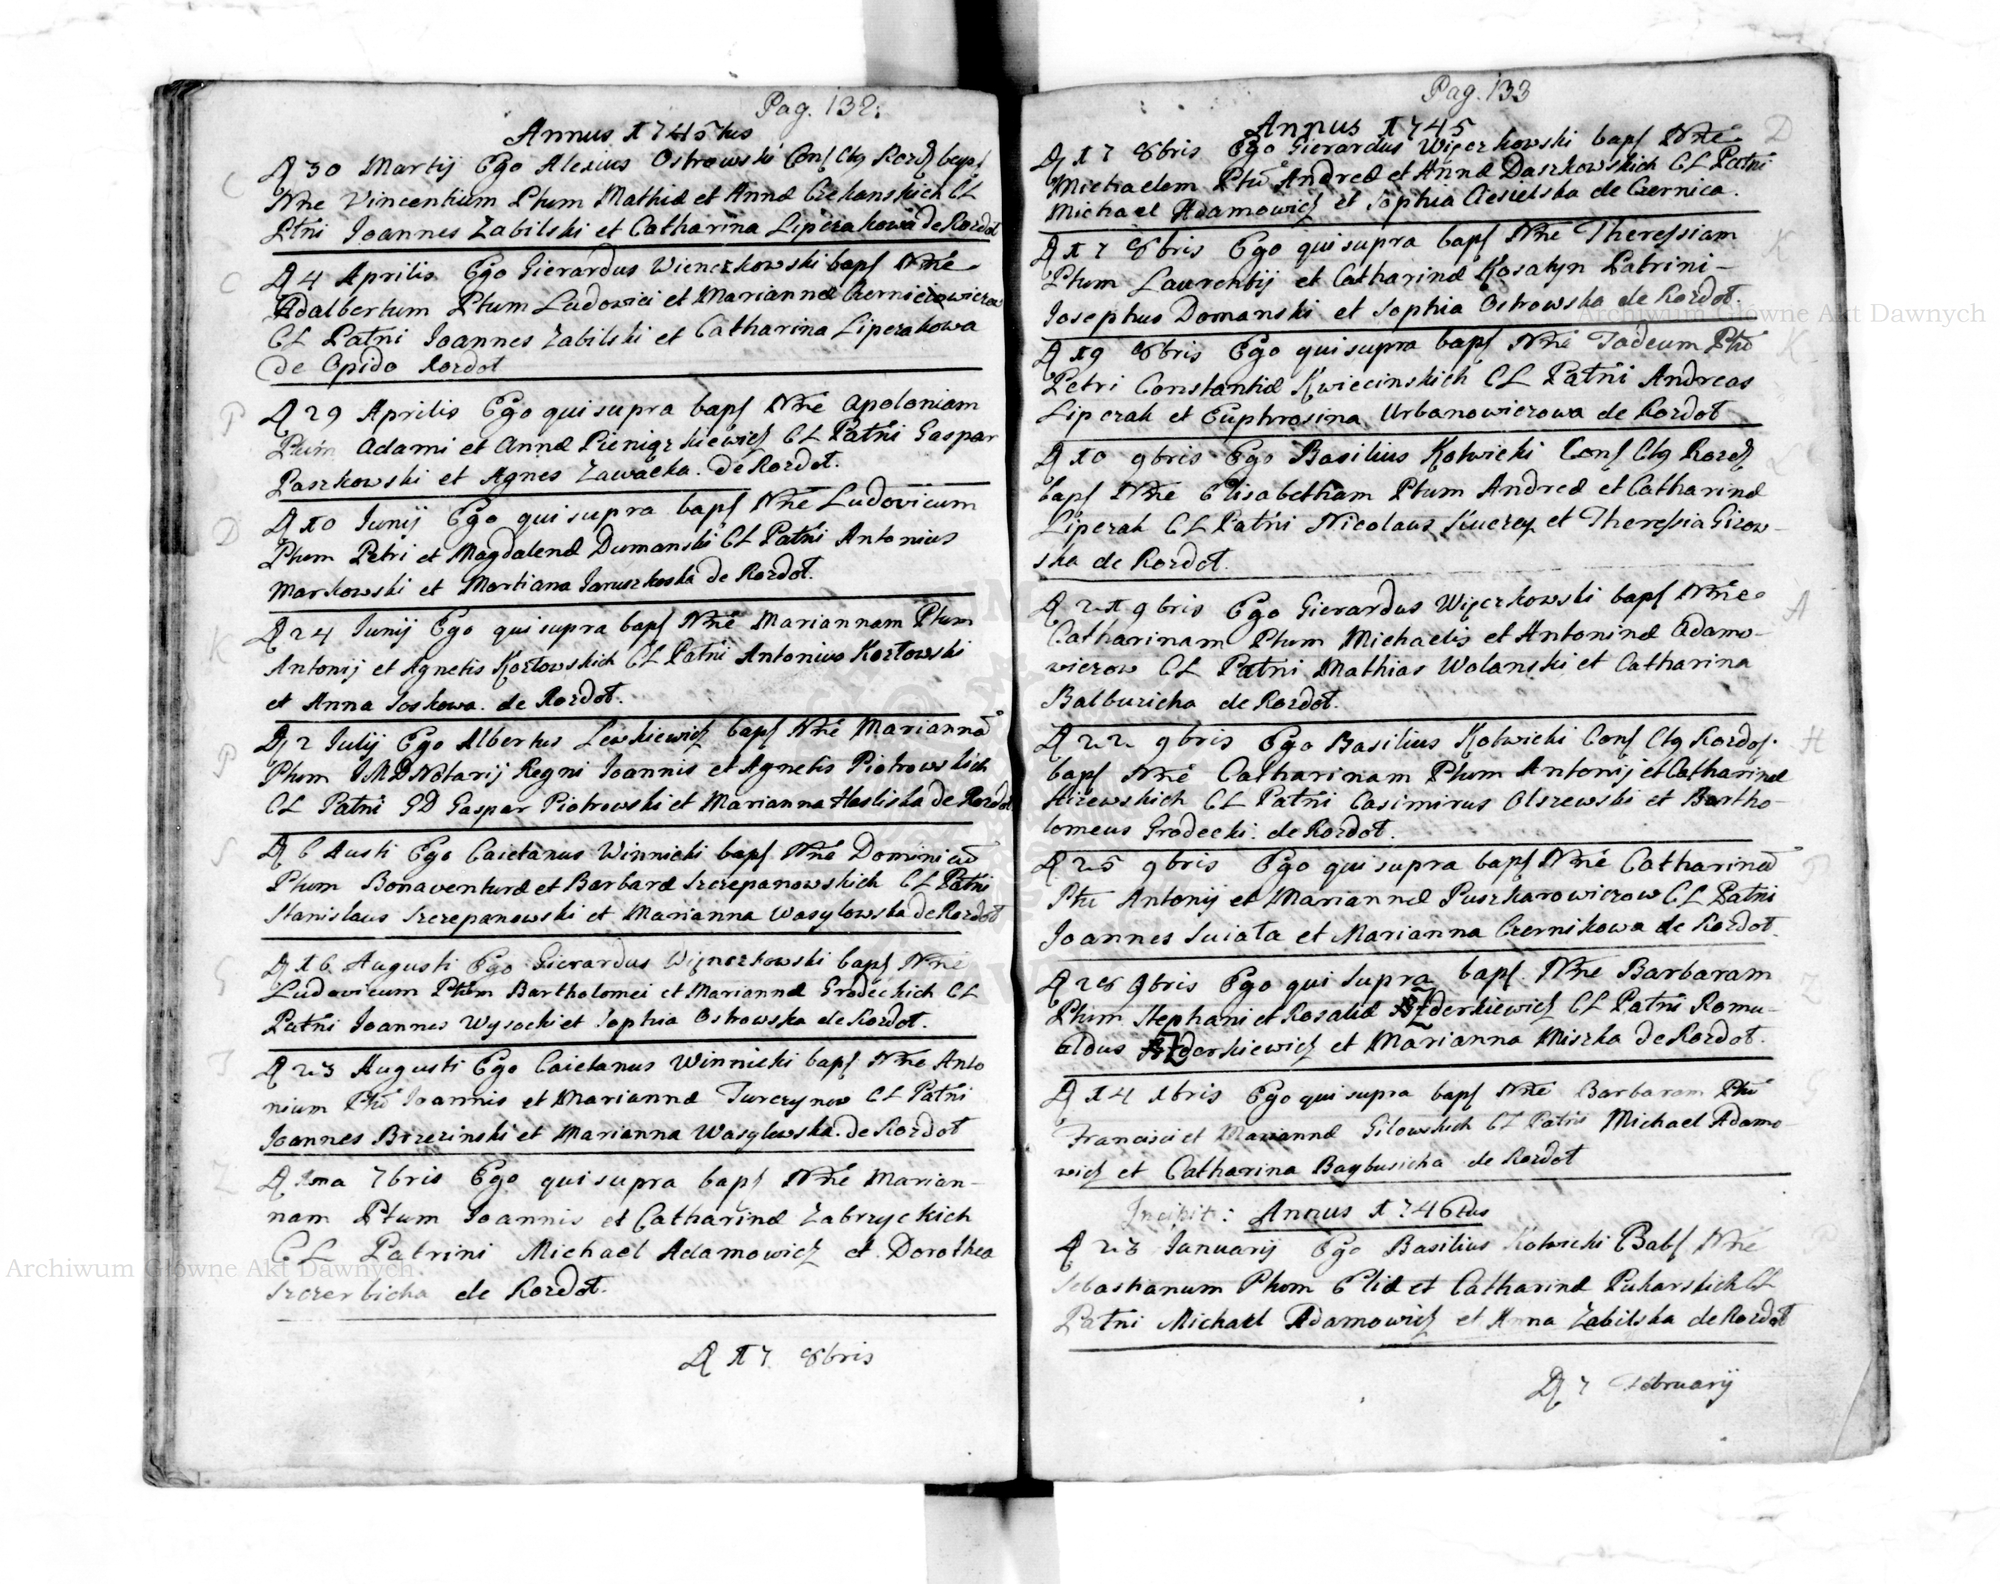 Pag. 132.
Annus 1745tus
C
D 30 Martij Ego Alexius Ostrowski Conf Ctg Rozd bapf
Nne Vincentium Ptum Mathiæ et Annæ Czekanskich CL
Ptni Ioannes Zabilski et Catharina Liperakowa de Rozdoł
C
D 4 Aprilis Ego Gierardus Wienczkowski bapf Nne
Adalbertum Ptum Ludovici et Mariannæ
CL Patni Ioannes Zabilski et Catharina Liperakowa
de Opido Rozdoł
P
D 29 Aprilis Ego qui supra bapf Nne Apoloniam
Ptum Adami et Annæ CL Patni Gaspar
Paszkowski et Agnes Zawacka. de Rozdoł.
D
D 10 Iunij Ego qui supra bapf Nne Ludovicum
Ptum Petri et Magdalenæ Dumanski CL Patni Antonius
Markowski et Martiana Iaruszkoska de Rozdoł.
K
D 24 Iunij Ego qui supra bapf Nne Mariannam Ptum
Antonij et Agnetis Kozłowskich CL Patni Antonius Kozłowski
et Anna Ioskowa. de Rozdoł.
P
D 2 Iulij Ego Albertus Lewkiewicz bapf Nne Mariannā
Ptum I.M.D Notarij Regni Ioannis et Agnetis Piotrowskich
CL Patni GD Gaspar Piotrowski et Marianna de Rozdoł
S
D 6 Austi Ego Caietanus Winnicki bapf Nne Dominicā
Ptum Bonaventuræ et Barbaræ Szczepanowskich CL Patni
Stanislaus Szczepanowski et Marianna Wasylowska de Rozdoł
G
D 16 Augusti Ego Gierardus bapf Nne
Ludovicum Ptum Bartholomei et Mariannæ Grodeckich CL
Patni Ioannes Wysocki et Sophia Ostrowska de Rozdoł.
T
D 23 Augusti Ego Caietanus Winnicki bapf Nne Anto
nium Ptū Ioannis et Mariannæ Turczynow CL Patni
Ioannes Brzezinski et Marianna Wasylewska. de Rozdoł
Z
D 1ma 7bris Ego qui supra bapf Nne Marian-
nam Ptum Ioannis et Catharinæ Zabrzyckich
CL Patrini Michael Adamowicz et Dorothea
Szczerbicha de Rozdoł.
D 17 8bris
Pag. 133
Annus 1745
D
D 17 8bris Ego Gierardus Więczkowski bapf Nne
Michaelem Ptū Andreæ et Annæ Daszkowskich CL Patni
Michael Adamowicz et Sophia Ciesielska de Czernica.
K
D 17 8bris Ego qui supra bapf Nne Theressiam
Ptum Laurentij et Catharinæ Kosatyn Patrini-
Iosephus Domanski et Sophia Ostrowska de Rozdoł.
K
D 19 8bris Ego qui supra bapf Nne Tadeum Ptū
Petri Constantiæ Kwiecinskich CL Patni Andreas
Liperak et Euphrosina Urbanowiczowa de Rozdoł
L
D 10 9bris Ego Basilius Kotwicki Conf Ctg Rozd
bapf Nne Elisabetham Ptum Andreæ et Catharinæ
Liperak CL Patni Nicolaus et Theressia Gizow-
ska de Rozdoł.
A
D 21 9bris Ego Gierardus Więczkowski bapf Nne
Catharinam Ptum Michaelis et Antoninæ Adamo-
wiczow CL Patni Mathias Wolanski et Catharina
Balbuzicha de Rozdoł.
H
D 22 9bris Ego Basilius Kotwicki Conf Ctg Rozdoł.
bapf Nne Catharinam Ptum Antonij et Catharinæ
Hizewskich CL Patni Casimirus Olszewski et Bartho-
lomeus Grodecki. de Rozdoł.
P
D 25 9bris Ego qui supra bapf Nne Catharinā
Ptū Antonij et Mariannæ Puszkarowiczow CL Patni
Ioannes Suiata et Marianna Czernikowa de Rozdoł.
Z
D 28 9bris Ego qui supra bapf. Nne Barbaram
Ptum Stephani et Rosaliæ CL Patni Romu-
aldus et Marianna Miszka de Rozdoł.
G
D 14 xbris Ego qui supra bapf Nne Barbaram Ptū
Francisci et Mariannæ Gilowskich CL Patni Michael Adamo-
wicz et Catharina Baybusicha de Rozdoł
Incipit: Annus 1746tus
P
D 23 Ianuarij Ego Basilius Kotwicki Babf Nne
Sebastianum Ptum Eliæ et Catharinæ Puharskich CL
Patni Michael Adamowicz et Anna Zabilska de Rozdoł
D 7 Februarij
Archiwum Główne Akt Dawnych
Archiwum Główne Akt Dawnych